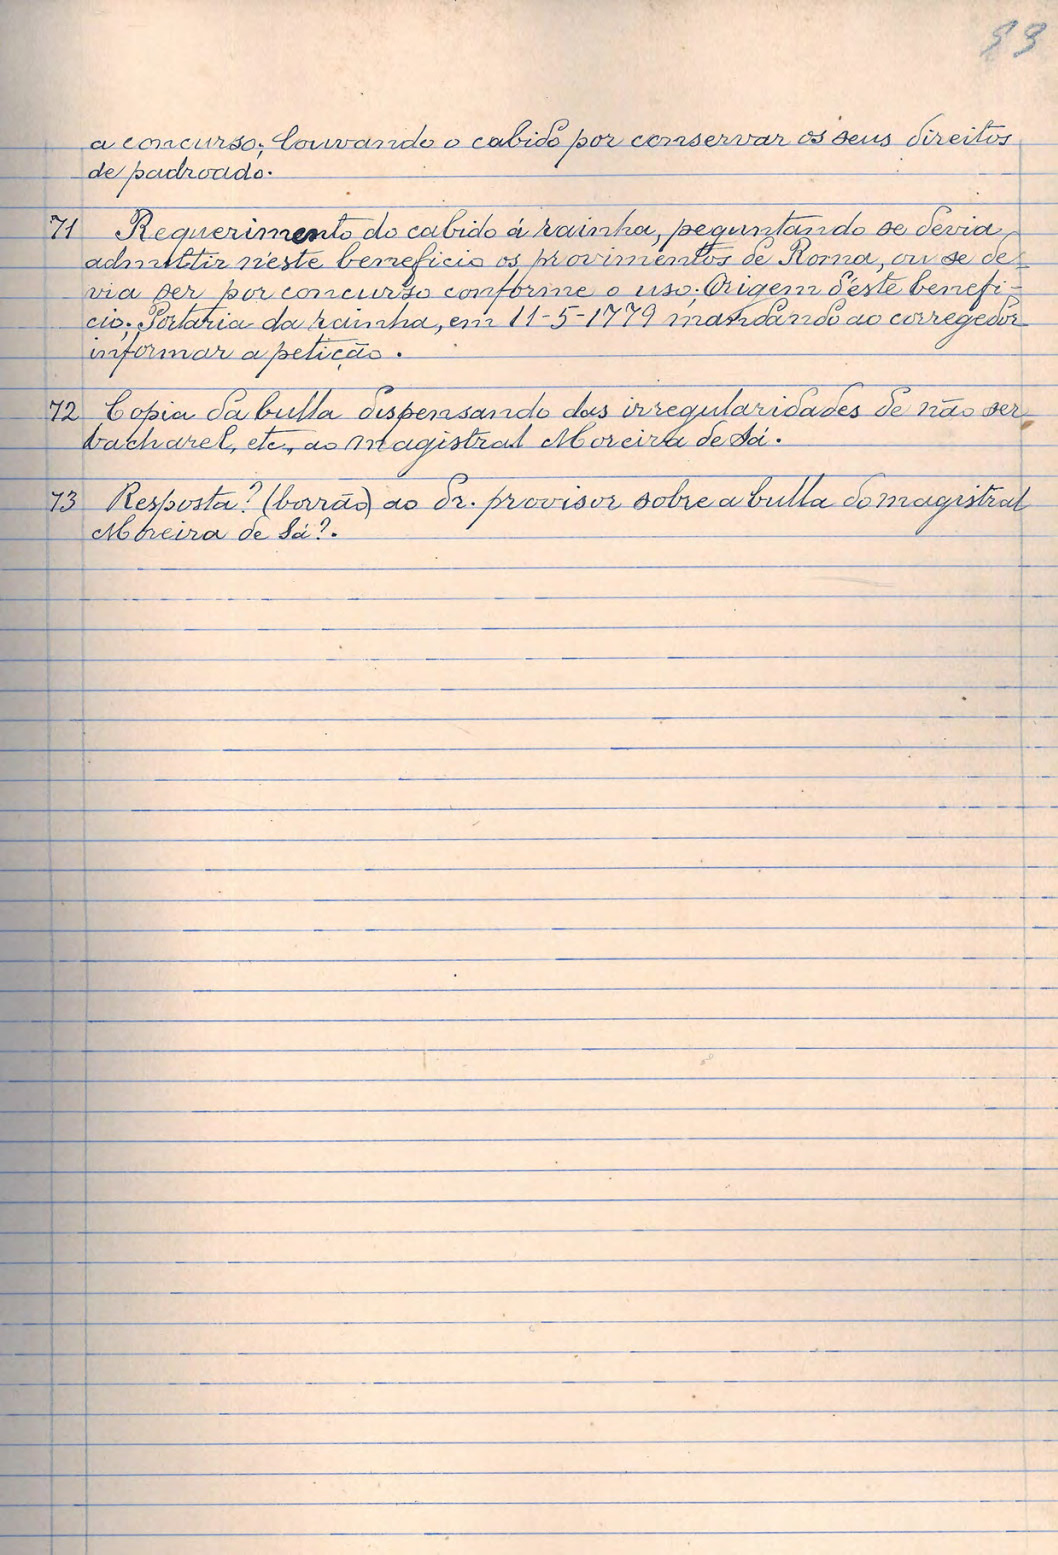 83
a concurso; louvando o cabido por conservar os seus direitos
de padroado.
71 Requerimento do cabido á rainha, peguntando se devia
admittir n'este beneficio os provimentos de Roma, ou se de-
via ser por concurso conforme o uso; Origem d'este benefi-
cio; Portaria da rainha, em 11-5-1779 mandando ao corregedor
informar a petição.
72 Copia da bulla dispensando das irregularidades de não ser
bacharel, etc, ao magistral Moreira de Sá.
73 Resposta? (borrão) ao dr. provisor sobre a bulla do magistral
Moreira de Sá?.